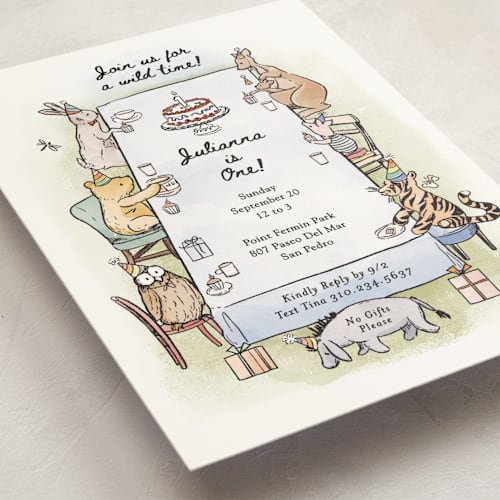 Join us for
a wild time!
Julianna
is
One!
Sunday
September 20
12 to 3
Point Fermin Park
807 Paseo Del Mar
San Pedro
Kindly Reply by 9/2
Text Tina 310.234.5637
No Gifts
Please